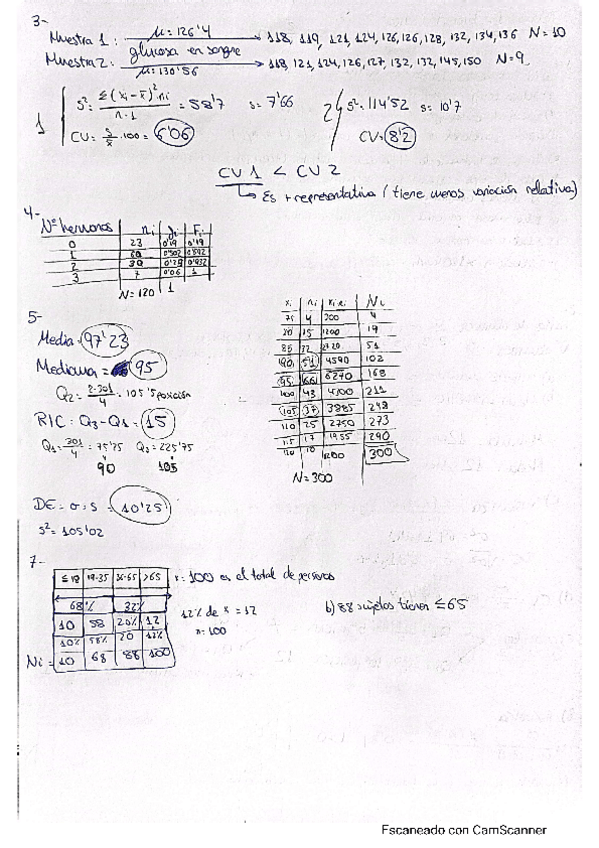 3-
Muestra 1 : μ = 126'4 → 118, 119, 121, 124, 126, 126, 128, 132, 134, 136 N = 10
glucosa en sangre
Muestra 2 : μ = 130'56 → 118, 121, 124, 126, 127, 132, 132, 145, 150 N = 9
1 S² = Σ(xi - x̄)² · ni / n - 1 = 58'7 s = 7'66
CV = s/x̄ · 100 = 6'06
2 S² = 114'52 s = 10'7
CV = 8'2
CV 1 < CV 2
↳ Es + representativa (tiene menos variación relativa)
4-
Nº hermanos ni fi Fi
0 23 0'19 0'19
1
2
3 7 0'06 1
N = 120 1
5-
Media = 97'23
Mediana = 95
Q2 = 2·301/4 = 150'5 posición
RIC : Q3 - Q1 = 15
Q1 = 301/4 = 75'25 Q3 = 225'75
90 105
DE = σ = s = 10'25
S² = 105'02
xi ni xi·ni Ni
75 4 300 4
80 15 1200 19
85 51
90 51 4590 102
95 66 6270 168
100 43 4300 211
105 37 3885 248
110 25 2750 273
115 17 1955 290
10 1200 300
N = 300
7-
≤18 19-35 36-65 >65
68% 32%
10 58 20% 12
10% 58% 20 12%
Ni = 10 68 88 100
x = 100 es el total de personas
12% de x = 12
x = 100
b) 88 sujetos tienen ≤ 65
Escaneado con CamScanner